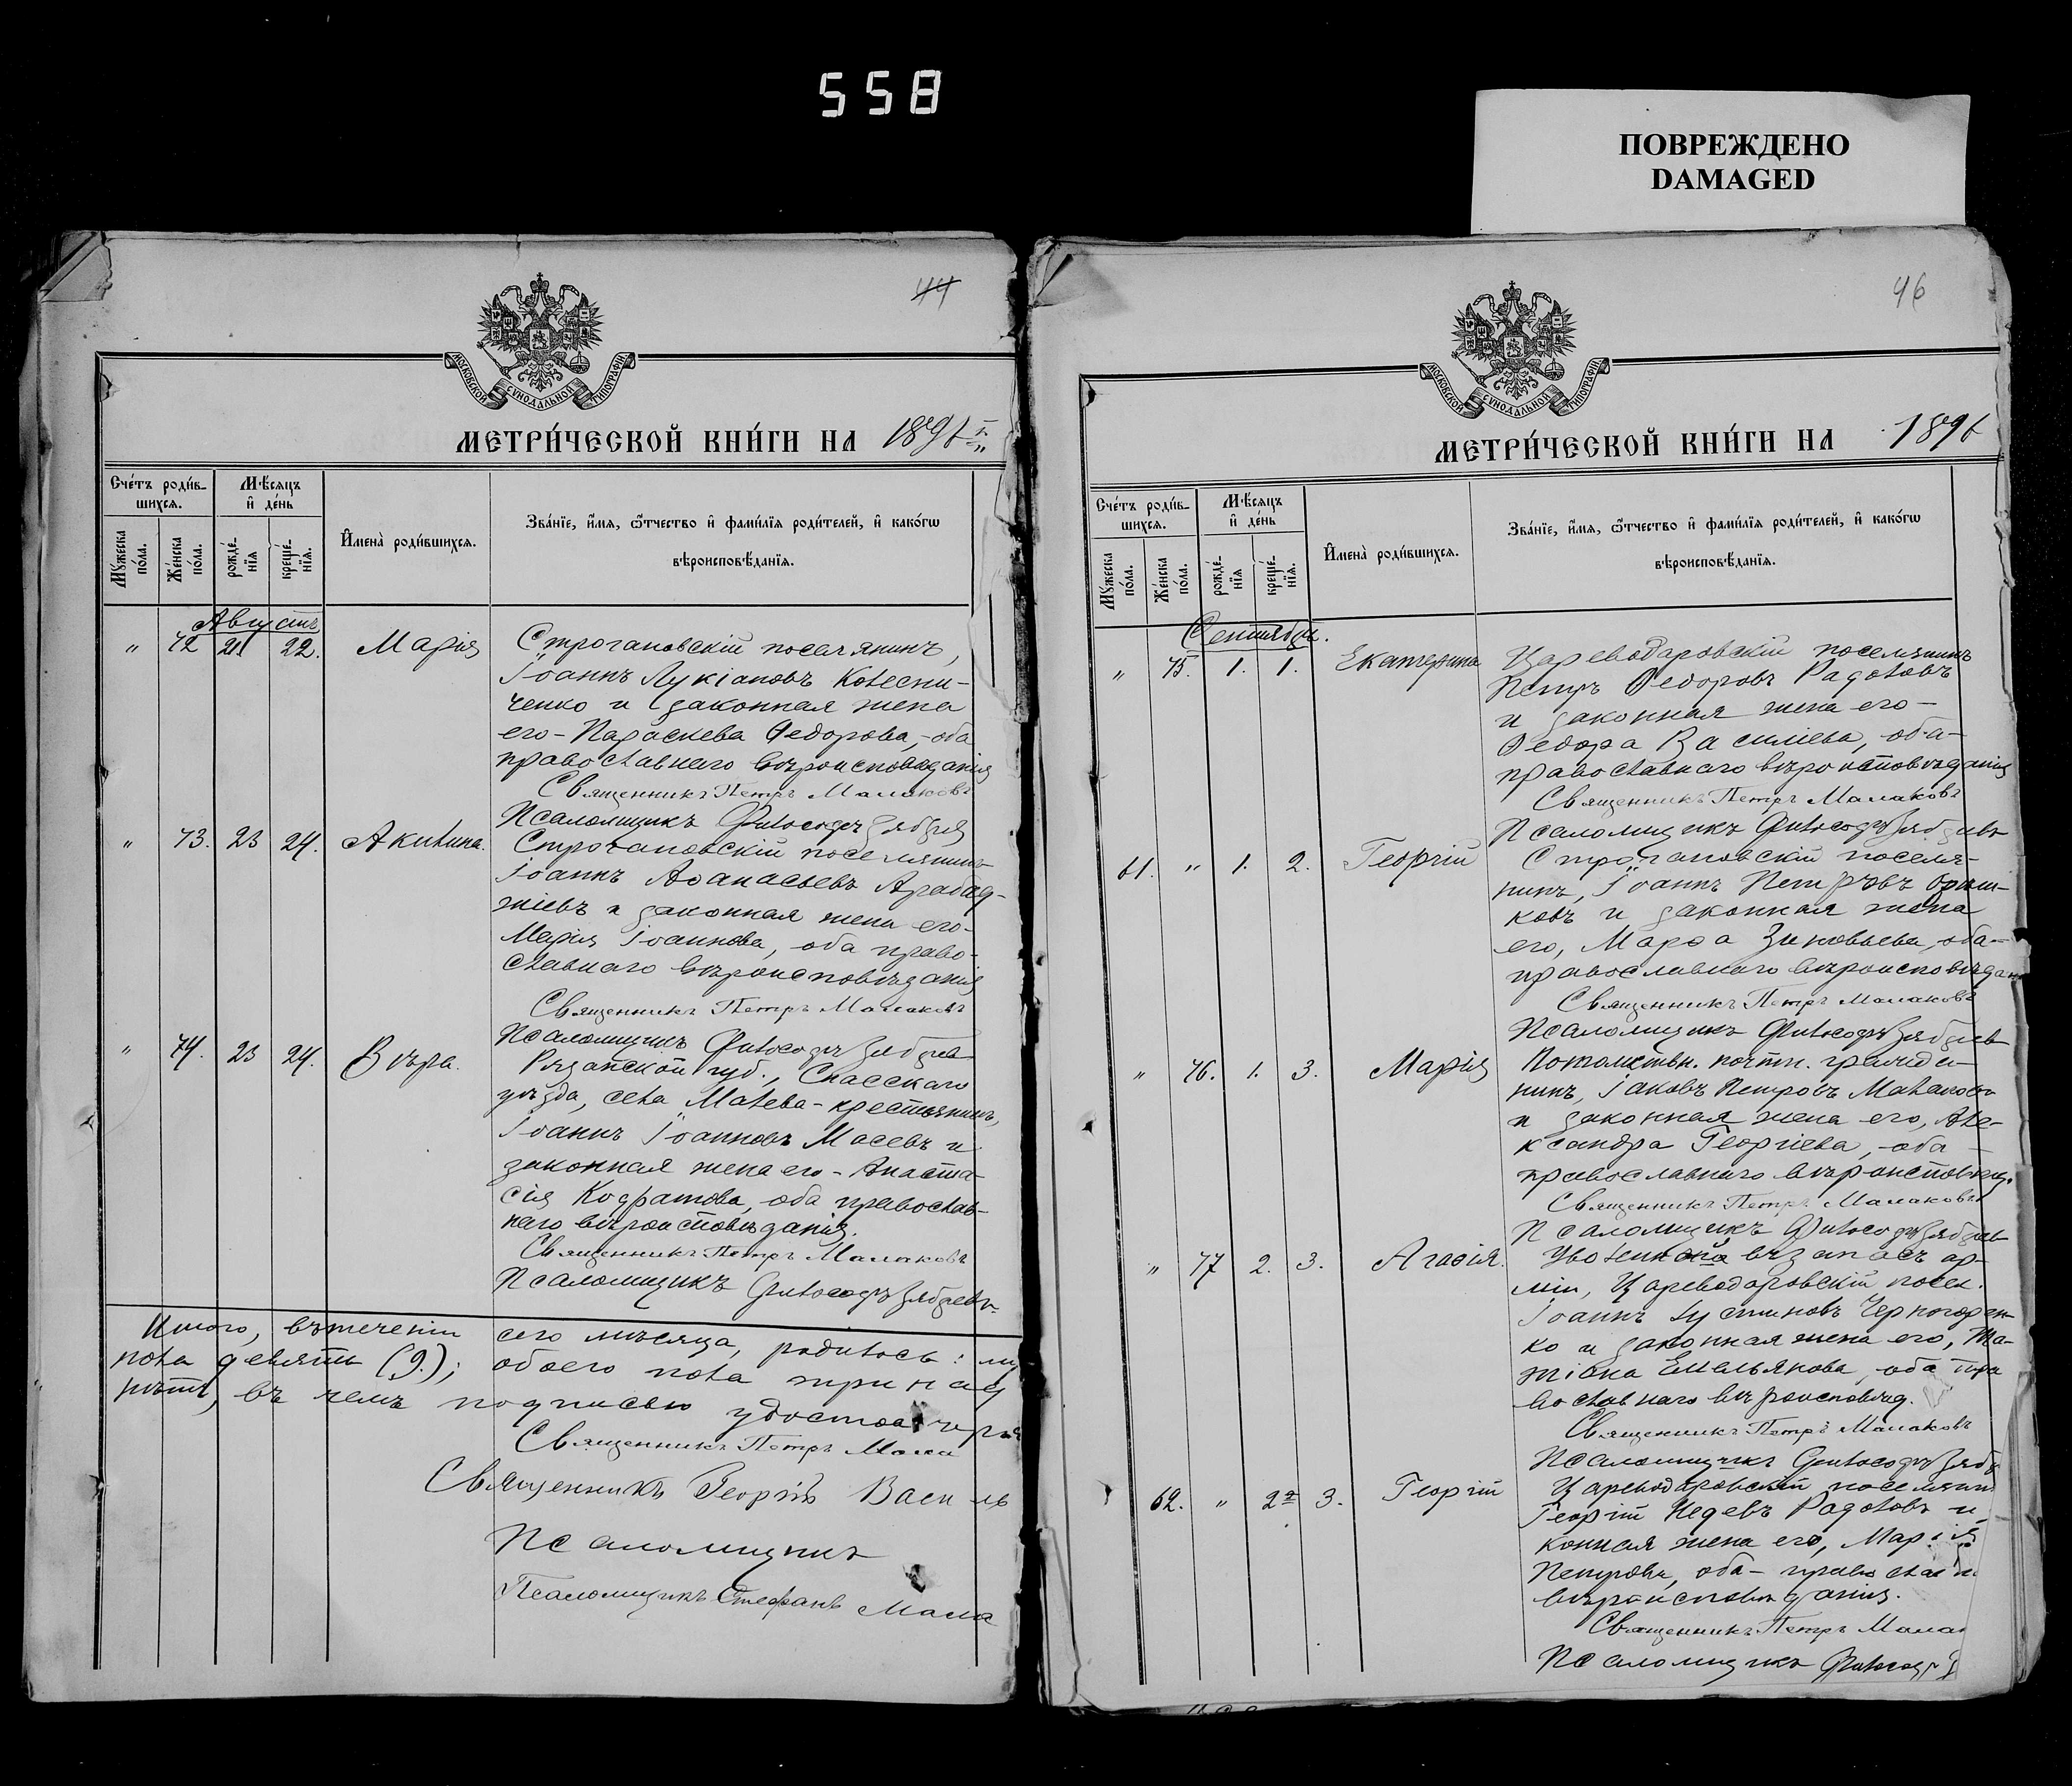 558
ПОВРЕЖДЕНО
DAMAGED
44
МОСКОВСКОЙ СѴНОДАЛЬНОЙ ТИПОГРАФІИ
МЕТРИ́ЧЕСКОЙ КНИ́ГИ НА 1896 г.
Сче́тъ роди́в-
шихся.
Мѣ́сяцъ
и҆ де́нь
Мꙋ́жеска по́ла.
Же́нска по́ла.
рожде́-нїѧ
креще́-нїѧ.
И҆мена̀ роди́вшихся.
Зва́нїе, и҆́мѧ, ѻ҆́тчество и҆ фами́лїѧ роди́телей, и҆ како́гѡ
вѣроисповѣ́данїѧ.
Августъ
„ 72 21 22. Марія Строгановскій поселянинъ,
Іоаннъ Лукіановъ Колесни-
ченко и законная жена
его - Параскева Ѳедорова, - оба
православнаго вѣроисповѣданія
Священникъ Петръ Малаковъ
Псаломщикъ
„ 73. 23 24. Акилина. Строгановскій поселянинъ
Іоаннъ Аѳанасьевъ Арабад-
жіевъ и законная жена его -
Марія Іоаннова, оба право-
славнаго вѣроисповѣданія
Священникъ Петръ Малаковъ
Псаломщикъ
„ 74. 23 24. Вѣра. Рязанской губ., Спасскаго
уѣзда, села - крестьянинъ,
Іоаннъ Іоанновъ Масевъ и
законная жена его - Анаста-
сія Кодратова, оба православ-
наго вѣроисповѣданія.
Священникъ Петръ Малаковъ
Псаломщикъ
Итого, въ теченіи сего мѣсяца, родилось:
пола девять (9.); обоего пола
въ чемъ подписью
Священникъ Петръ Мала
Священникъ Георгій Васи
Псаломщикъ
Псаломщикъ Стефанъ Мала
46
МОСКОВСКОЙ СѴНОДАЛЬНОЙ ТИПОГРАФІИ
МЕТРИ́ЧЕСКОЙ КНИ́ГИ НА 1896
Сче́тъ роди́в-
шихся.
Мѣ́сяцъ
и҆ де́нь
Мꙋ́жеска по́ла.
Же́нска по́ла.
рожде́-нїѧ
креще́-нїѧ.
И҆мена̀ роди́вшихся.
Зва́нїе, и҆́мѧ, ѻ҆́тчество и҆ фами́лїѧ роди́телей, и҆ како́гѡ
вѣроисповѣ́данїѧ.
Сентябрь.
„ 75. 1. 1. Екатерина Цареводаровскій поселянинъ
Петръ Ѳедоровъ Радоловъ
и законная жена его -
Ѳедора Василиева, оба -
православнаго вѣроисповѣданія
Священникъ Петръ Малаковъ
Псаломщикъ
61. „ 1. 2. Георгій Строгановскій поселя-
нинъ, Іоаннъ Петровъ
ковъ и законная жена
его, Марѳа Зиновьева, оба -
православнаго вѣроисповѣдан
Священникъ Петръ Малаковъ
Псаломщикъ
„ 76. 1. 3. Марія Потомствен. почтн. гражда-
нинъ, Іаковъ Петровъ Малаковъ
и законная жена его, Але-
ксандра Георгіева, - оба -
православнаго вѣроисповѣд.
Священникъ Петръ Малаковъ
Псаломщикъ
„ 77 2. 3. Агаѳія. Уволенный въ запасъ ар-
міи, Цареводаровскій посел.
Іоаннъ Іустиновъ
ко и законная жена его, Та-
тіана Емельянова, оба пра
вославнаго вѣроисповѣд.
Священникъ Петръ Малаковъ
Псаломщикъ
62. „ 2го 3. Георгій Цареводаровскій поселянин
Георгій Недевъ Радоловъ и
конная жена его, Марія
Петрова, оба - православн
вѣроисповѣданія.
Священникъ Петръ Мала
Псаломщикъ